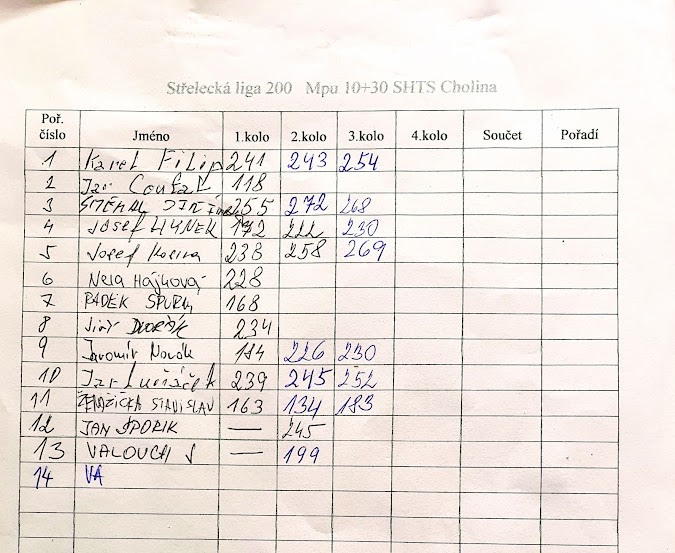 Střelecká liga 200 Mpu 10+30 SHTS Cholina
Poř. číslo Jméno 1.kolo 2.kolo 3.kolo 4.kolo Součet Pořadí
1 Karel Filip 241 243 254
2 Jan Coufal 118
3 255 272 268
4 Josef HYNEK 192 222 230
5 Josef Kocina 238 258 269
6 Nela Hájková 228
7 RADEK SPURN 168
8 Jiří DVOŘÁK 234
9 Jaromír Novák 184 226 230
10 Jan 239 245 252
11 STANISLAV 163 134 183
12 JAN SPORIK — 245
13 VALOUCH J — 199
14 VA